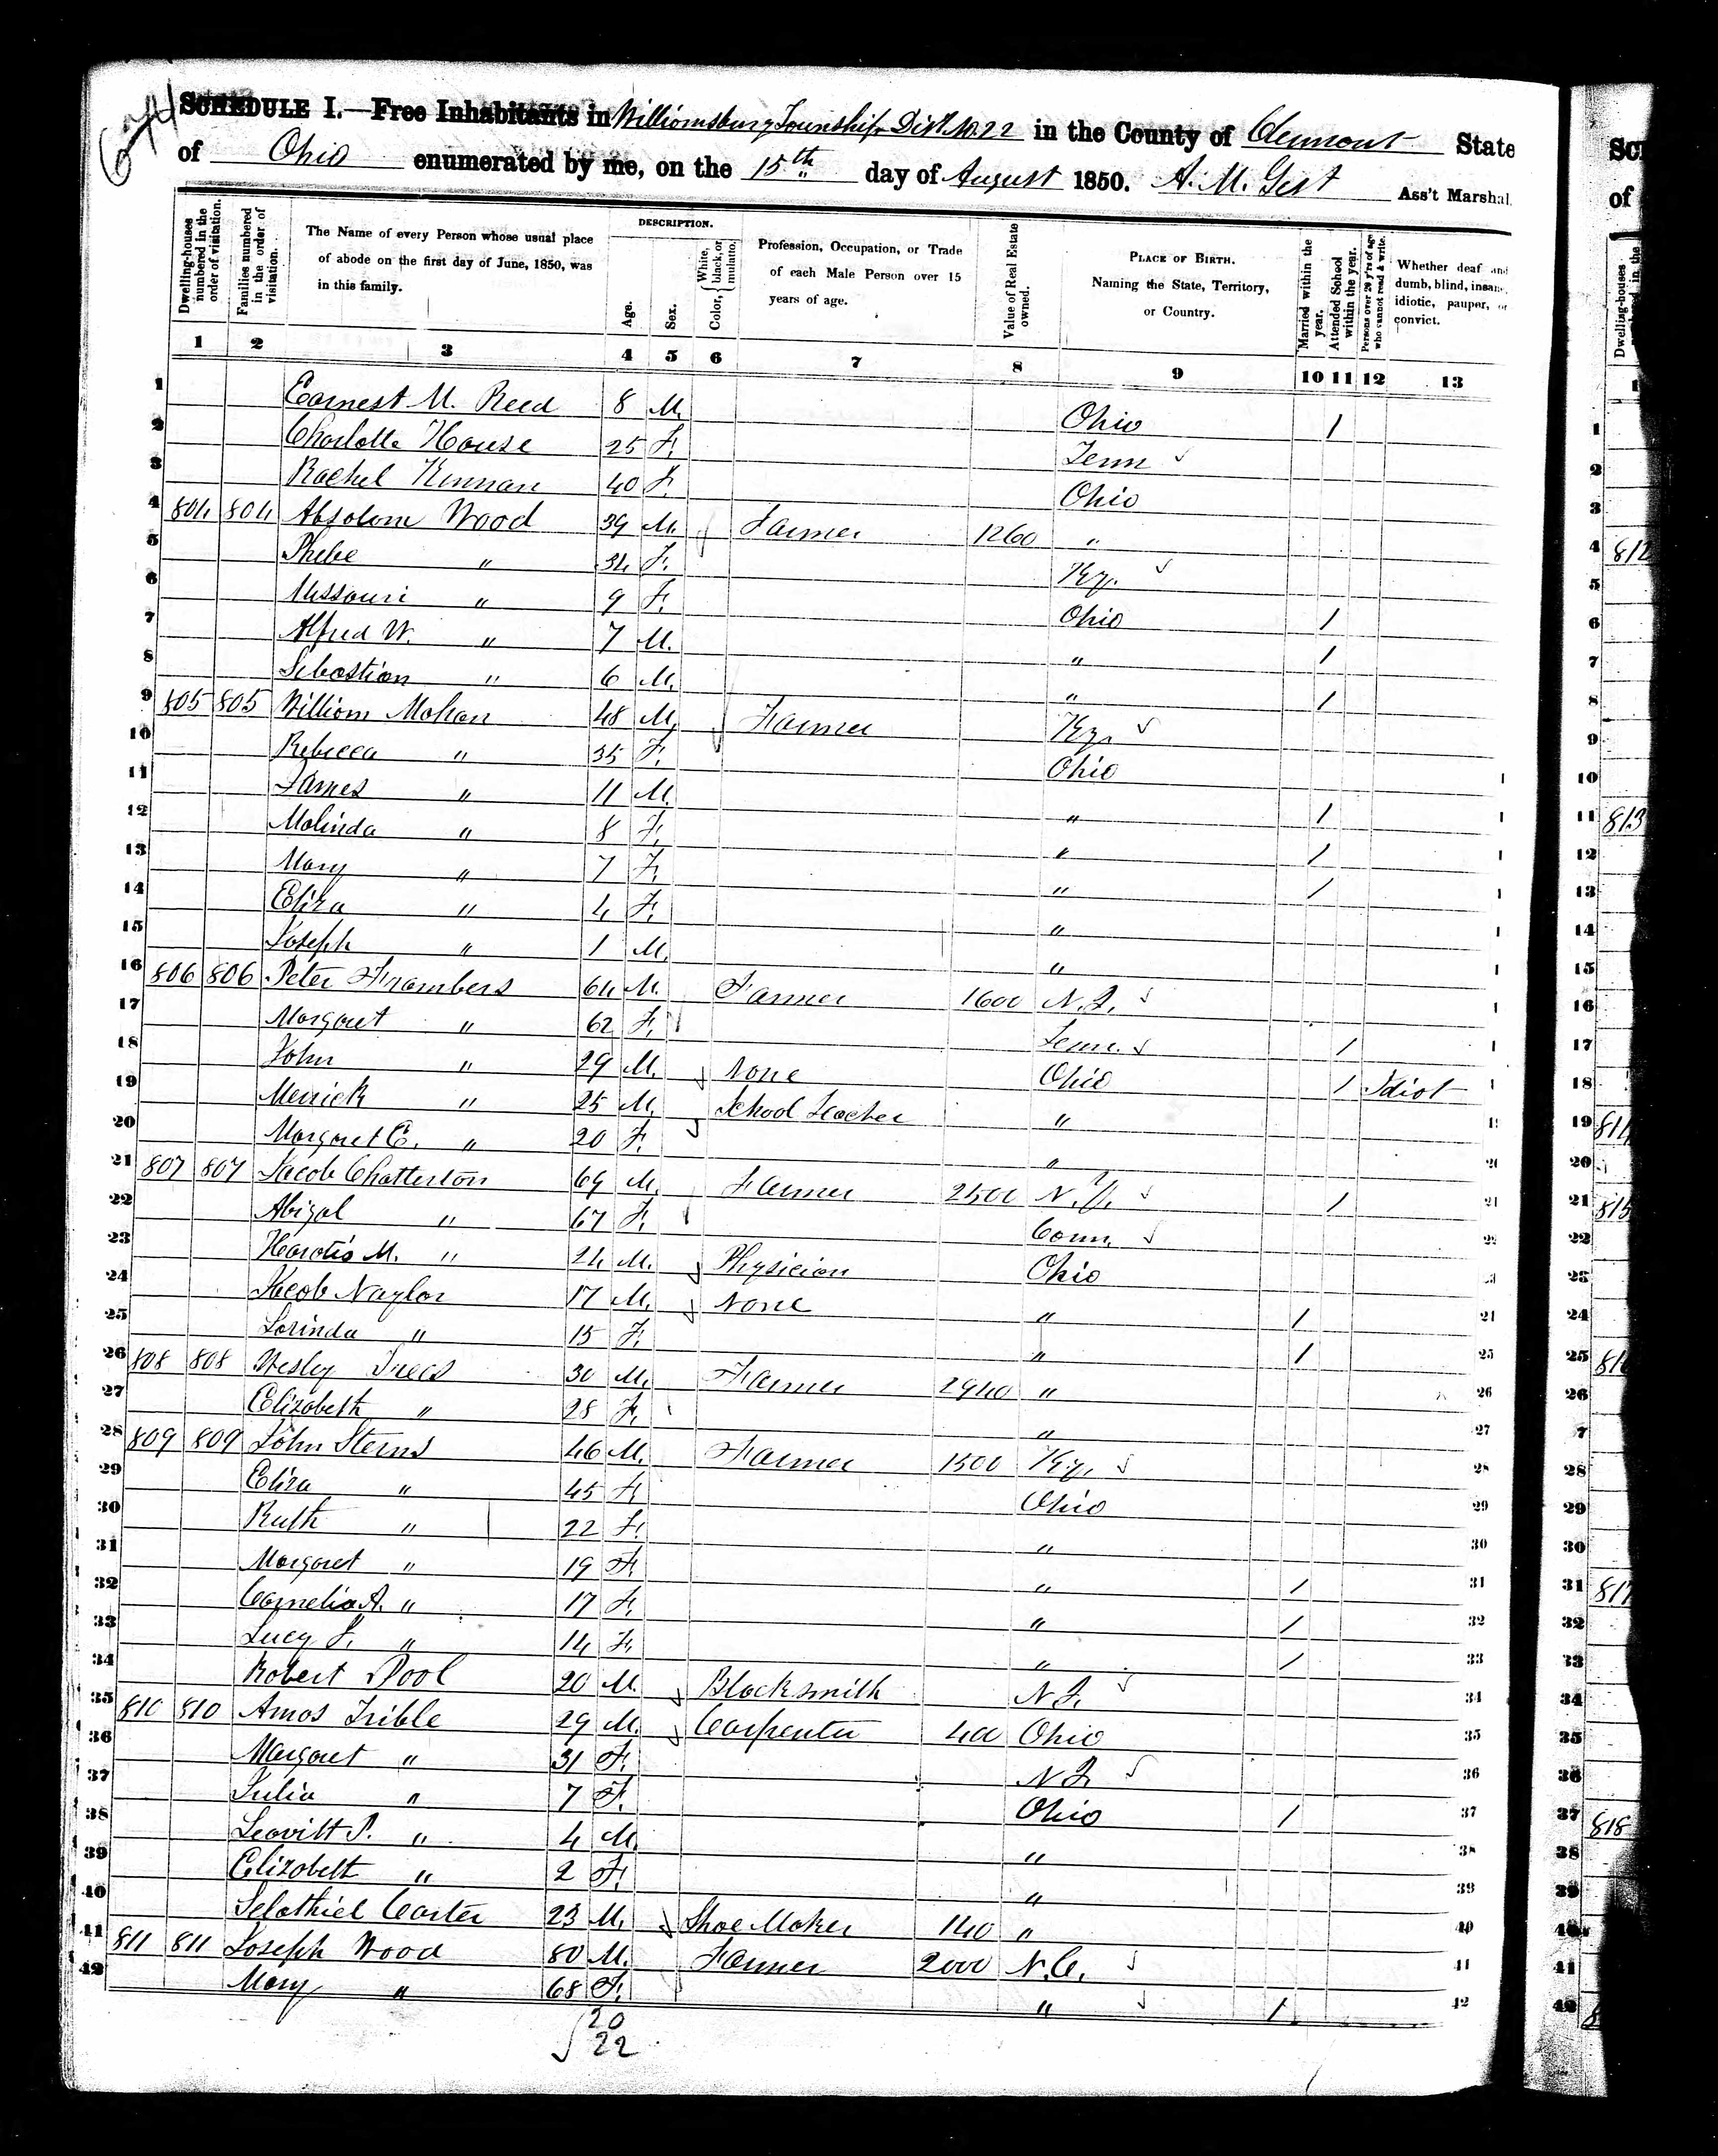 SCHEDULE I.—Free Inhabitants in Williamsburg Township Dist. No. 22 in the County of Clermont State
of Ohio enumerated by me, on the 15th day of August 1850. A. M. Gest Ass't Marshal.
Dwelling-houses numbered in the order of visitation.
Families numbered in the order of visitation.
The Name of every Person whose usual place of abode on the first day of June, 1850, was in this family.
DESCRIPTION.
Age.
Sex.
Color, White, black, or mulatto.
Profession, Occupation, or Trade of each Male Person over 15 years of age.
Value of Real Estate owned.
PLACE OF BIRTH. Naming the State, Territory, or Country.
Married within the year.
Attended School within the year.
Persons over 20 y'rs of age who cannot read & write.
Whether deaf and dumb, blind, insane, idiotic, pauper, or convict.
1 2 3 4 5 6 7 8 9 10 11 12 13
1 Earnest M. Reed 8 M. Ohio 1
2 Charlotte House 25 F. Tenn
3 Rachel Kinnan 40 F. Ohio
4 804 804 Absolom Wood 39 M. Farmer 1260 "
5 Phebe " 34 F. Ky.
6 Missouri " 9 F. Ohio 1
7 Alfred W. " 7 M. " 1
8 Sebastian " 6 M. " 1
9 805 805 William Mahan 48 M. Farmer Ky.
10 Rebecca " 35 F. Ohio
11 James " 11 M. " 1
12 Malinda " 8 F. " 1
13 Mary " 7 F. " 1
14 Eliza " 4 F. "
15 Joseph " 1 M. "
16 806 806 Peter Frambers 64 M. Farmer 1600 N.J.
17 Margaret " 62 F. Tenn. 1
18 John " 29 M. None Ohio 1 Idiot
19 Merrick " 25 M. School Teacher "
20 Margaret E. " 20 F. "
21 807 807 Jacob Chatterton 69 M. Farmer 2500 N.Y. 1
22 Abigal " 67 F. Conn.
23 M. " 24 M. Physician Ohio
24 Jacob Naylor 17 M. None " 1
25 Lorinda " 15 F. " 1
26 808 808 Wesley Trees 30 M. Farmer 2940 "
27 Elizabeth " 28 F. "
28 809 809 John Sterns 46 M. Farmer 1500 Ky.
29 Eliza " 45 F. Ohio
30 Ruth " 22 F. "
31 Margaret " 19 F. " 1
32 Cornelia A. " 17 F. " 1
33 Lucy " 14 F. " 1
34 Robert Pool 20 M. Blacksmith N.J.
35 810 810 Amos Trible 29 M. Carpenter 400 Ohio
36 Margaret " 31 F. N.J.
37 Julia " 7 F. Ohio 1
38 Leavitt P. " 4 M. "
39 Elizabeth " 2 F. "
40 Selathiel Carter 23 M. Shoe Maker 140 "
41 811 811 Joseph Wood 80 M. Farmer 2000 N.C.
42 Mary " 68 F. " 1
20
22
812
813
814
815
816
817
818